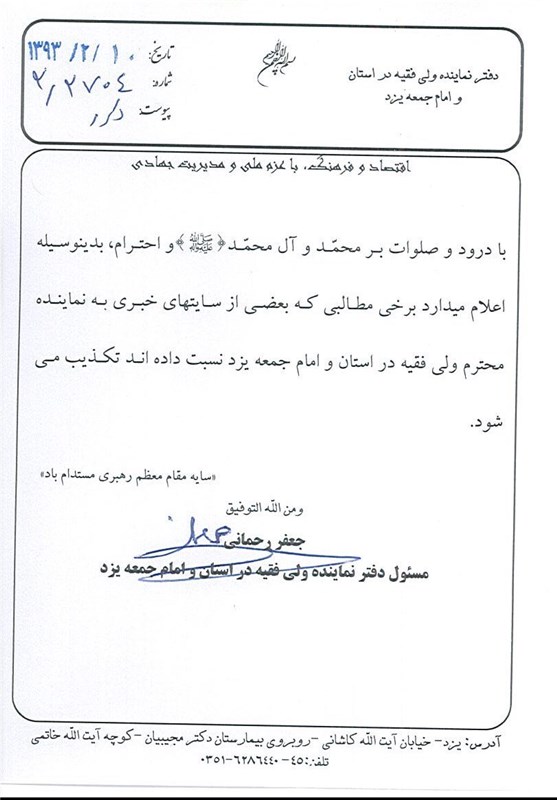 دفتر نماینده ولی فقیه در استان
و امام جمعه یزد
تاریخ: ۱۳۹۳/۲/۱۰
شماره: ۳/۲۷۰۴
پیوست:
اقتصاد و فرهنگ، با عزم ملی و مدیریت جهادی
با درود و صلوات بر محمّد و آل محمّد﴿ﷺ﴾و احترام، بدینوسیله
اعلام میدارد برخی مطالبی که بعضی از سایتهای خبری به نماینده
محترم ولی فقیه در استان و امام جمعه یزد نسبت داده اند تکذیب می
شود.
«سایه مقام معظم رهبری مستدام باد»
ومن الله التوفیق
جعفر رحمانی
مسئول دفتر نماینده ولی فقیه در استان و امام جمعه یزد
آدرس: یزد- خیابان آیت الله کاشانی -روبروی بیمارستان دکتر مجیبیان -کوچه آیت الله خاتمی
تلفن:۴۵- ۶۲۸۶۴۴۰-۰۳۵۱